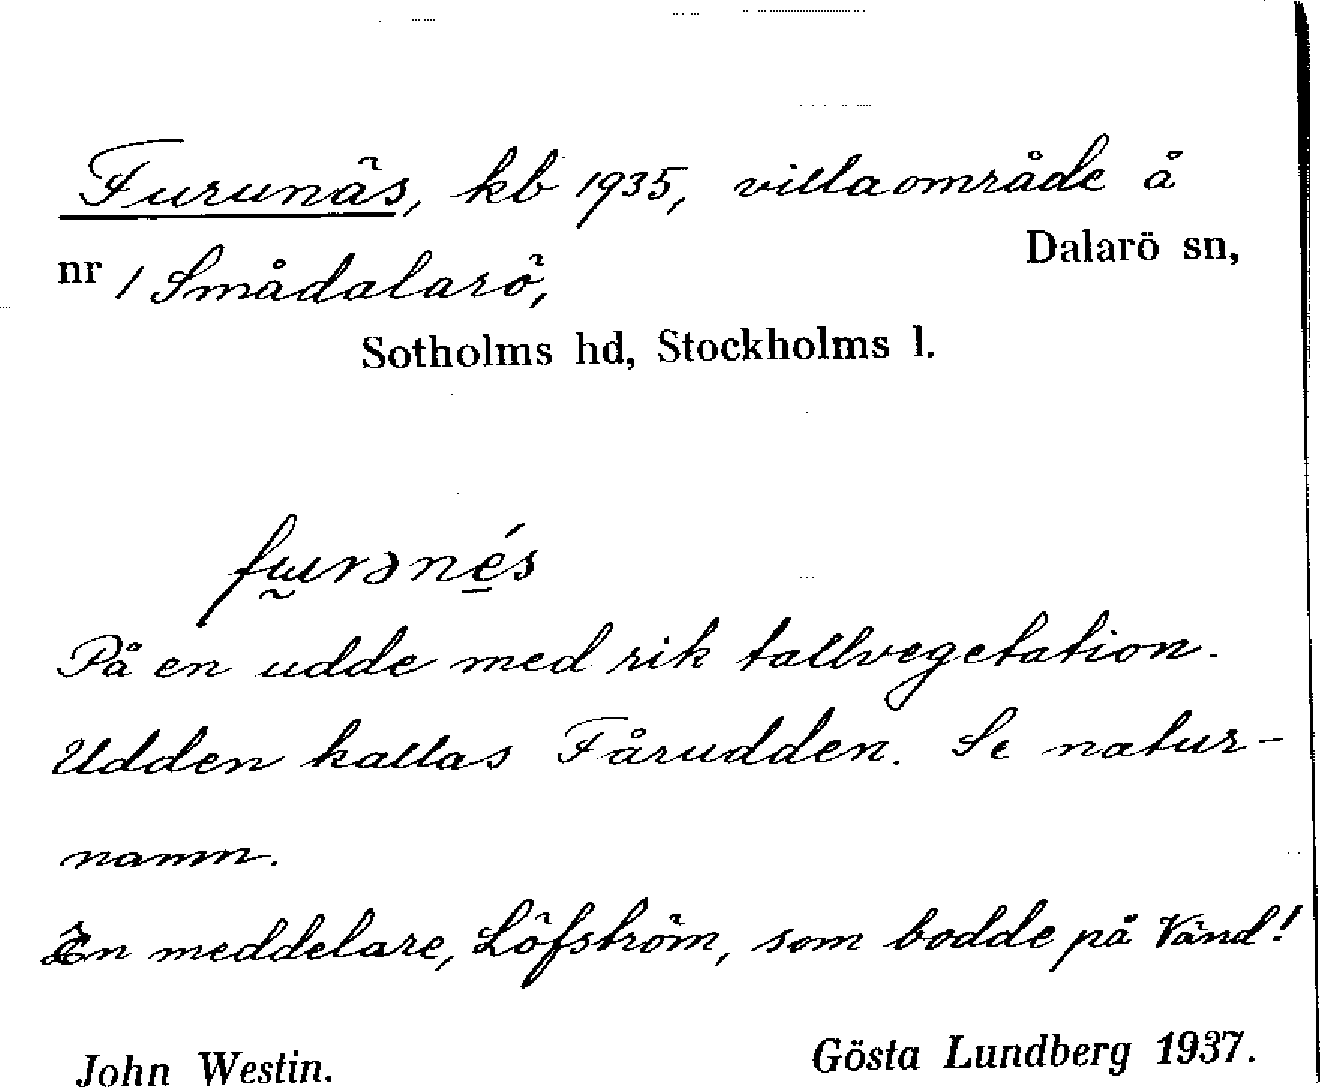 Furunäs, kb 1935, villaområde å
Dalarö sn,
nr 1 Smådalarö,
Sotholms hd, Stockholms l.
furənés
På en udde med rik tallvegetation.
Udden kallas Fårudden. Se natur-
namn.
En meddelare, Löfström, som bodde på Vänd!
John Westin. Gösta Lundberg 1937.